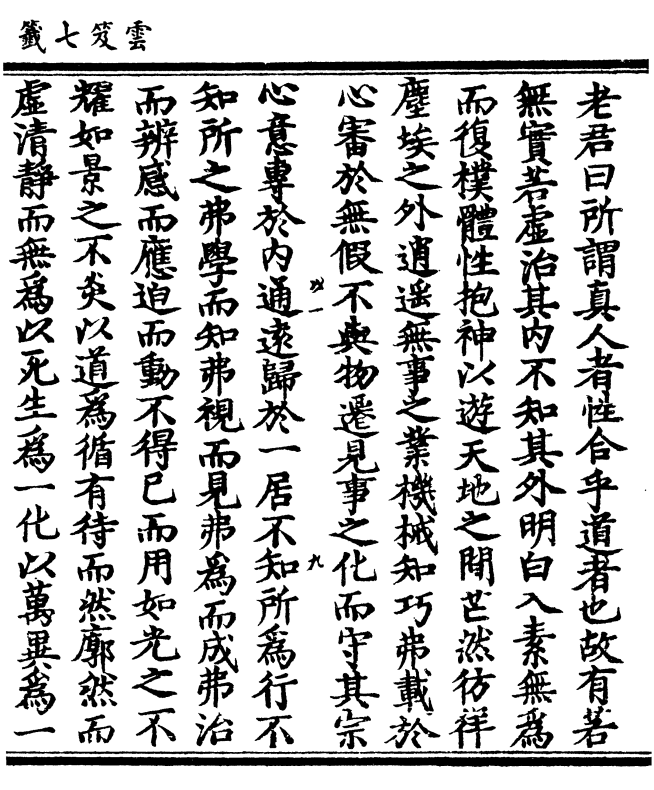 雲笈七籤
老君曰所謂真人者性合乎道者也故有若
無實若虛治其內不知其外明白入素無為
而復樸體性抱神以遊天地之間芒然彷徉
塵埃之外逍遥無事之業機械知巧弗載於
心審於無假不與物遷見事之化而守其宗
心意專於內通遠歸於一居不知所為行不
知所之弗學而知弗視而見弗為而成弗治
而辨感而應迫而動不得已而用如光之不
耀如景之不炎以道為循有待而然廓然而
虛清靜而無為以死生為一化以萬異為一